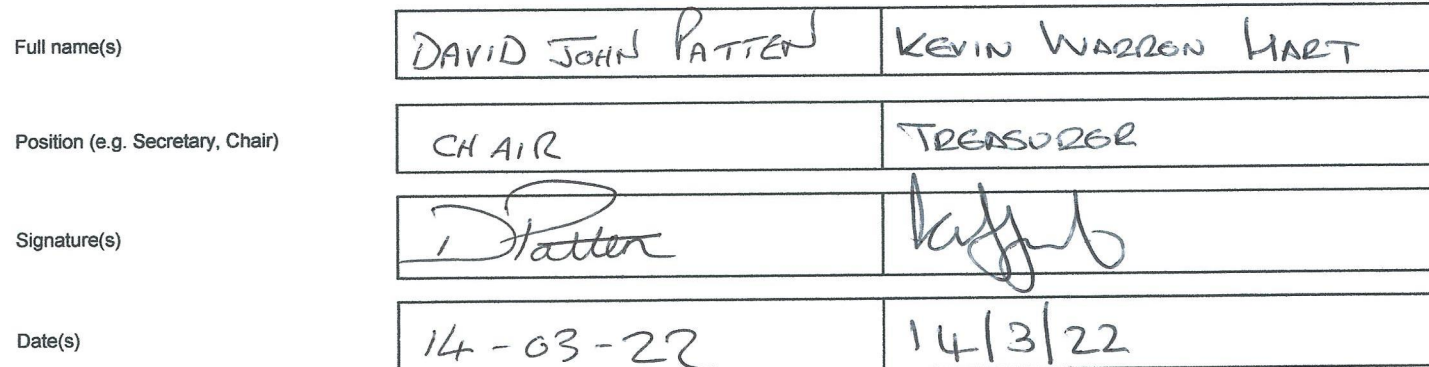 Full name(s) DAVID JOHN PATTEN KEVIN WARREN HART
Position (e.g. Secretary, Chair) CHAIR TREASURER
Signature(s) DPatten
Date(s) 14-03-22 14/3/22